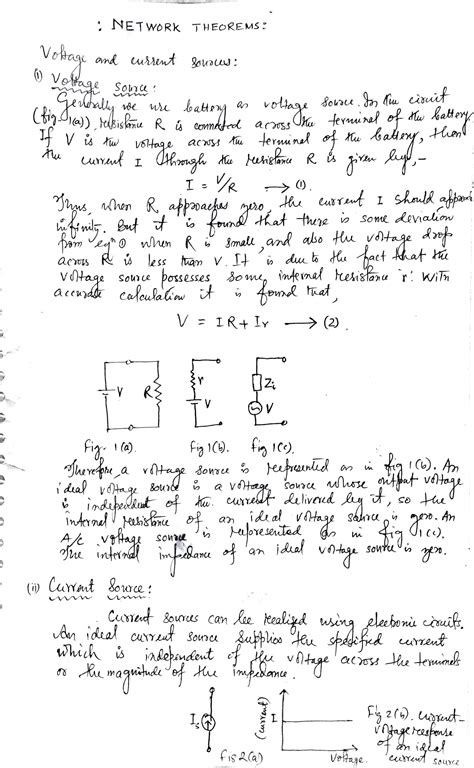 : NETWORK THEOREMS:
Voltage and current sources:
(i) Voltage Source:
Generally we use battery as voltage source. In the circuit
(fig. 1(a)), resistance R is connected across the terminal of the battery.
If V is the voltage across the terminal of the battery, then
the current I through the resistance R is given by,-
I = V/R ⟶ (1).
Thus, when R approaches zero, the current I should approach
infinity. But it is found that there is some deviation
from eqn ① when R is small, and also the voltage drop
across R is less than V. It is due to the fact that the
voltage source possesses some internal resistance 'r'. With
accurate calculation it is found that,
V = IR + Ir ⟶ (2).
V R r V Zi V
Fig. 1(a). Fig 1(b). Fig 1(c).
Therefore, a voltage source is represented as in fig 1(b). An
ideal voltage source is a voltage source whose output voltage
is independent of the current delivered by it, so the
internal resistance of an ideal voltage source is zero. An
A/c voltage source is represented as in fig 1(c).
The internal impedance of an ideal voltage source is zero.
(ii) Current Source:
Current sources can be realized using electronic circuits.
An ideal current source supplies the specified current
which is independent of the voltage across the terminals
or the magnitude of the impedance.
Is
(current) I
Voltage.
Fig 2(a)
Fig 2(b). Current-
voltage response
of an ideal
current source